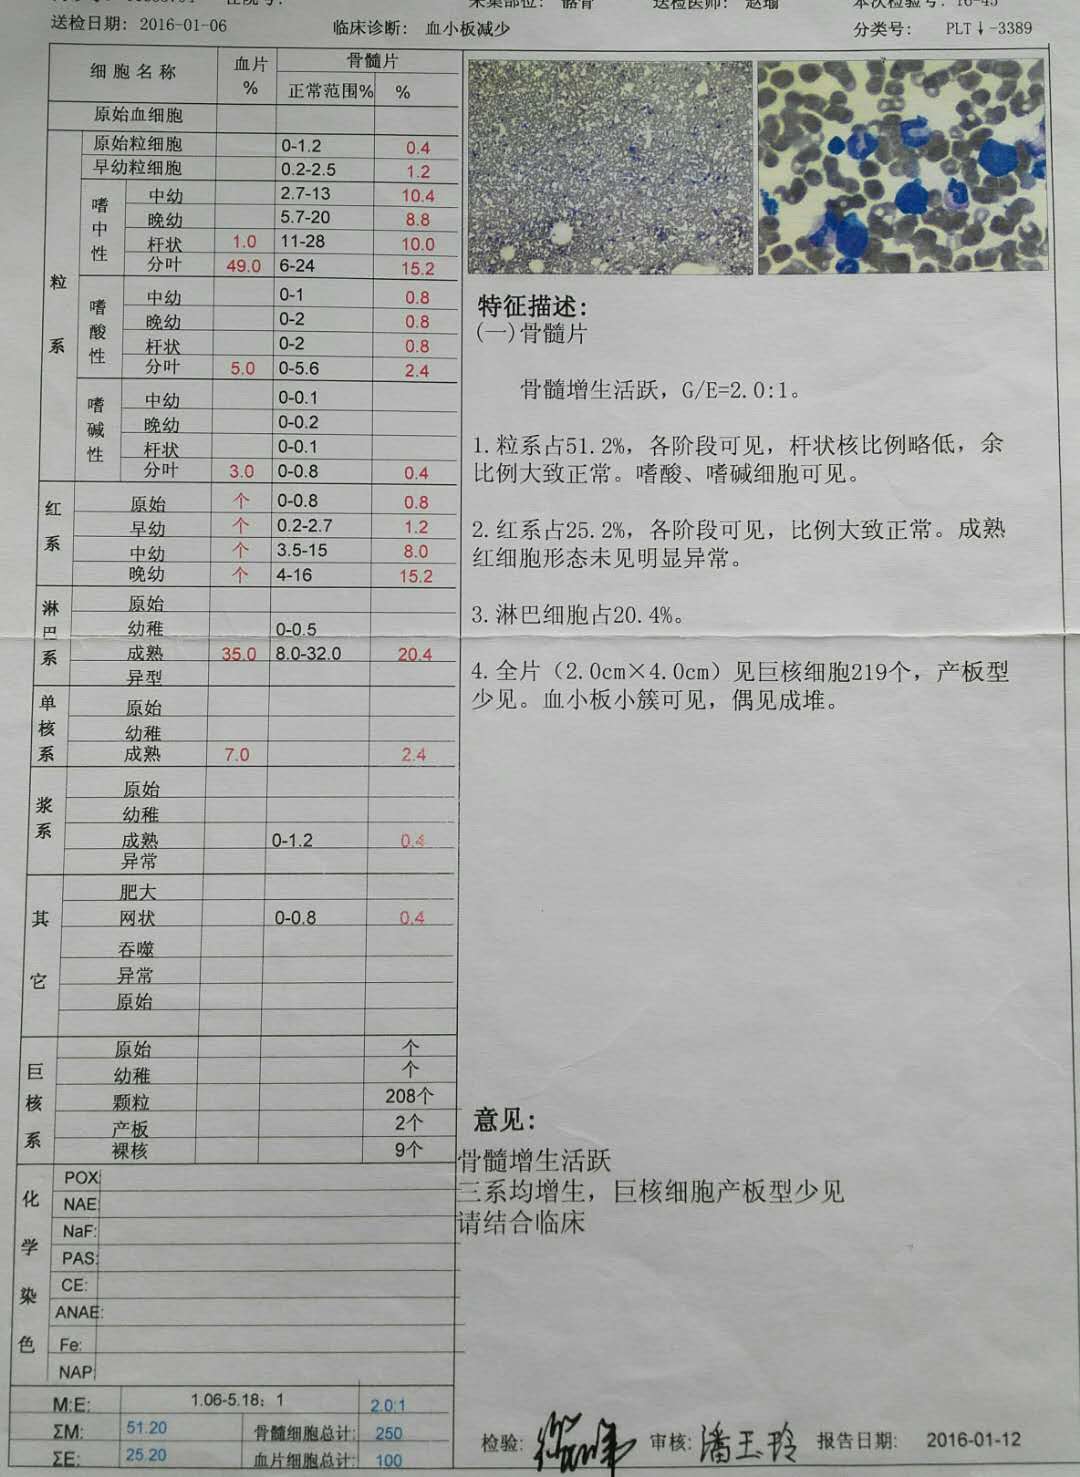 送检日期: 2016-01-06 临床诊断: 血小板减少 分类号: PLT↓-3389
细胞名称 血片 % 骨髓片
正常范围% %
原始血细胞
粒系
原始粒细胞 0-1.2 0.4
早幼粒细胞 0.2-2.5 1.2
嗜中性
中幼 2.7-13 10.4
晚幼 5.7-20 8.8
杆状 1.0 11-28 10.0
分叶 49.0 6-24 15.2
嗜酸性
中幼 0-1 0.8
晚幼 0-2 0.8
杆状 0-2 0.8
分叶 5.0 0-5.6 2.4
嗜碱性
中幼 0-0.1
晚幼 0-0.2
杆状 0-0.1
分叶 3.0 0-0.8 0.4
红系
原始 个 0-0.8 0.8
早幼 个 0.2-2.7 1.2
中幼 个 3.5-15 8.0
晚幼 个 4-16 15.2
淋巴系
原始
幼稚 0-0.5
成熟 35.0 8.0-32.0 20.4
异型
单核系
原始
幼稚
成熟 7.0 2.4
浆系
原始
幼稚
成熟 0-1.2 0.4
异常
其它
肥大
网状 0-0.8 0.4
吞噬
异常
原始
巨核系
原始 个
幼稚 个
颗粒 208个
产板 2个
裸核 9个
化学染色
POX:
NAE:
NaF:
PAS:
CE:
ANAE:
Fe:
NAP:
M:E: 1.06-5.18: 1 2.0:1
ΣM: 51.20 骨髓细胞总计: 250
ΣE: 25.20 血片细胞总计: 100
特征描述:
(一)骨髓片
骨髓增生活跃，G/E=2.0:1。
1.粒系占51.2%，各阶段可见，杆状核比例略低，余
比例大致正常。嗜酸、嗜碱细胞可见。
2.红系占25.2%，各阶段可见，比例大致正常。成熟
红细胞形态未见明显异常。
3.淋巴细胞占20.4%。
4.全片（2.0cm×4.0cm）见巨核细胞219个，产板型
少见。血小板小簇可见，偶见成堆。
意见:
骨髓增生活跃
三系均增生，巨核细胞产板型少见
请结合临床
检验: 审核: 潘玉玲 报告日期: 2016-01-12